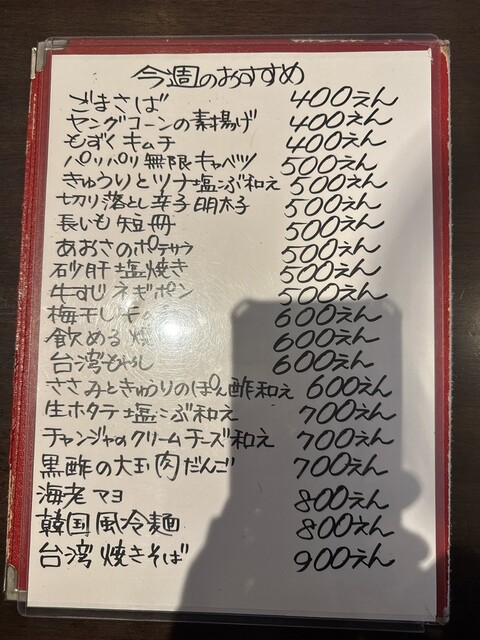 今週のおすすめ
ごまさば 400えん
ヤングコーンの素揚げ 400えん
もずくキムチ 400えん
パリパリ無限キャベツ 500えん
きゅうりとツナ塩こぶ和え 500えん
切り落とし辛子明太子 500えん
長いも短冊 500えん
あおさのポテサラ 500えん
砂肝塩焼き 500えん
牛すじネギポン 500えん
梅干し 600えん
飲める 600えん
台湾もやし 600えん
ささみときゅうりのぽん酢和え 600えん
生ホタテ塩こぶ和え 700えん
チャンジャのクリームチーズ和え 700えん
黒酢の大玉肉だんご 700えん
海老マヨ 800えん
韓国風冷麺 800えん
台湾焼きそば 900えん